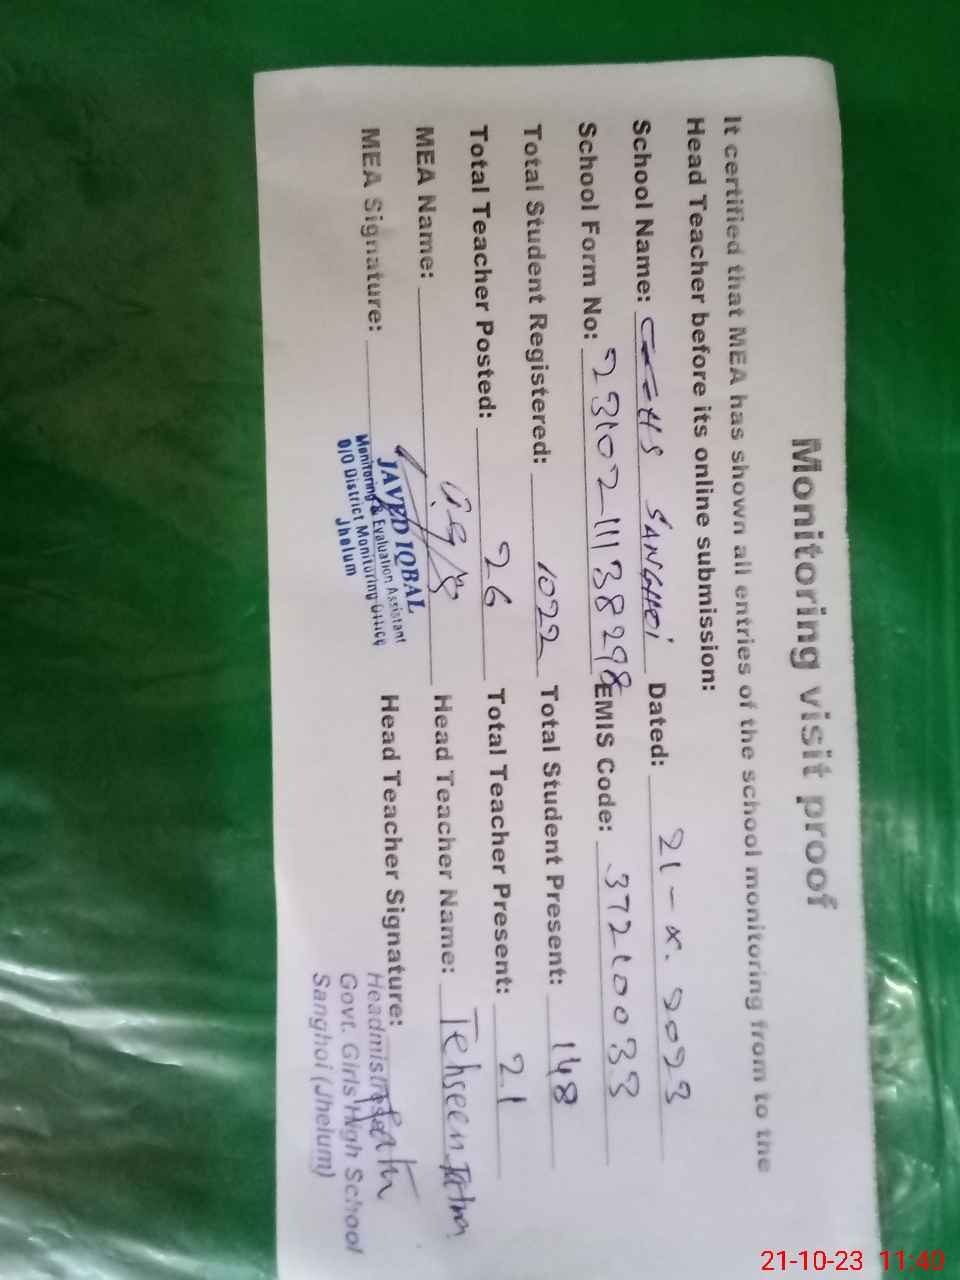 Monitoring visit proof
It certified that MEA has shown all entries of the school monitoring from to the
Head Teacher before its online submission:
School Name: GGHS SANGHOi Dated: 21-X-2023
School Form No: 2310211138298 EMIS Code: 37210033
Total Student Registered: 1022 Total Student Present: 148
Total Teacher Posted: 26 Total Teacher Present: 21
MEA Name: Head Teacher Name: Tehseen
MEA Signature: Head Teacher Signature:
JAVED IQBAL
Monitoring & Evaluation Assistant
O/O District Monitoring Office
Jhelum
Headmistress
Govt. Girls High School
Sanghoi (Jhelum)
21-10-23 11:40